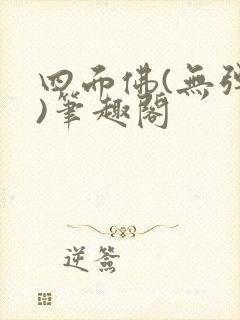 四而佛(無
)筆趣閣
逆簽